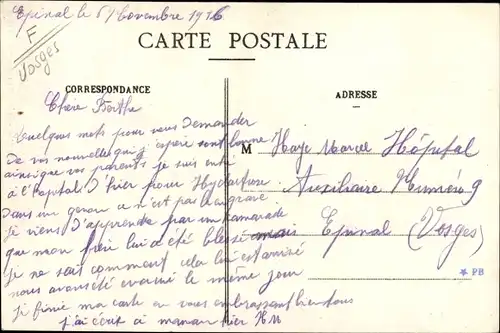 Epinal le 8 Novembre 1916
F
Vosges
CARTE POSTALE
CORRESPONDANCE
ADRESSE
Chere Berthe
Quelques mots pour vous demander
De vos nouvelles qui j'espère sont bonne
ainsi que vos parents je suis entré
à l'hopital hier pour Hydartrose
Dans un genou ce n'est pas bien grave
je viens d'apprendre par un camarade
que mon frère lui a été blessé mais
je ne sait comment cela lui est arrivé
nous avons été évacué le même jour
je finie ma carte en vous embrassant bien tous
j'ai écrit à maman hier HM
M Haye Marcel Hôpital
Auxiliaire Numéro 9
Epinal (Vosges)
* PB